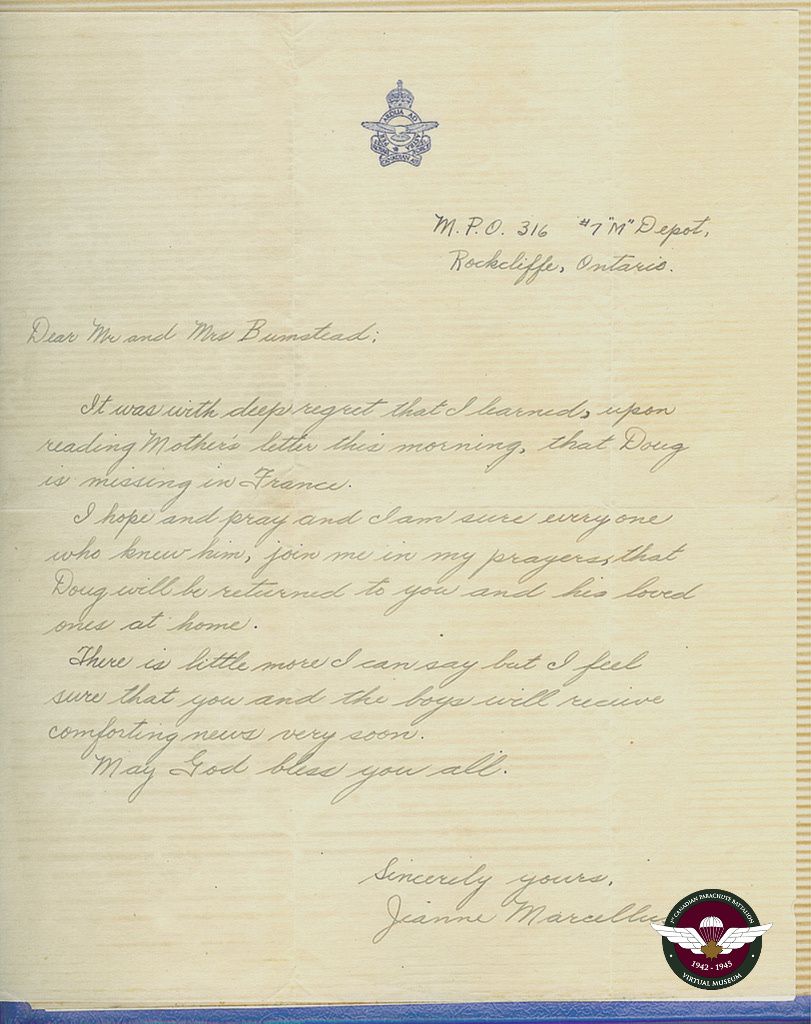 PER ARDUA AD ASTRA
ROYAL CANADIAN AIR FORCE
M.P.O. 316 #7 "M" Depot,
Rockcliffe, Ontario.
Dear Mr and Mrs Bumstead;
It was with deep regret that I learned, upon
reading Mother's letter this morning, that Doug
is missing in France.
I hope and pray and I am sure everyone
who knew him, join me in my prayers, that
Doug will be returned to you and his loved
ones at home.
There is little more I can say but I feel
sure that you and the boys will recieve
comforting news very soon.
May God bless you all.
Sincerely yours,
Jeanne Marcellus
1st CANADIAN PARACHUTE BATTALION
1942 - 1945
VIRTUAL MUSEUM